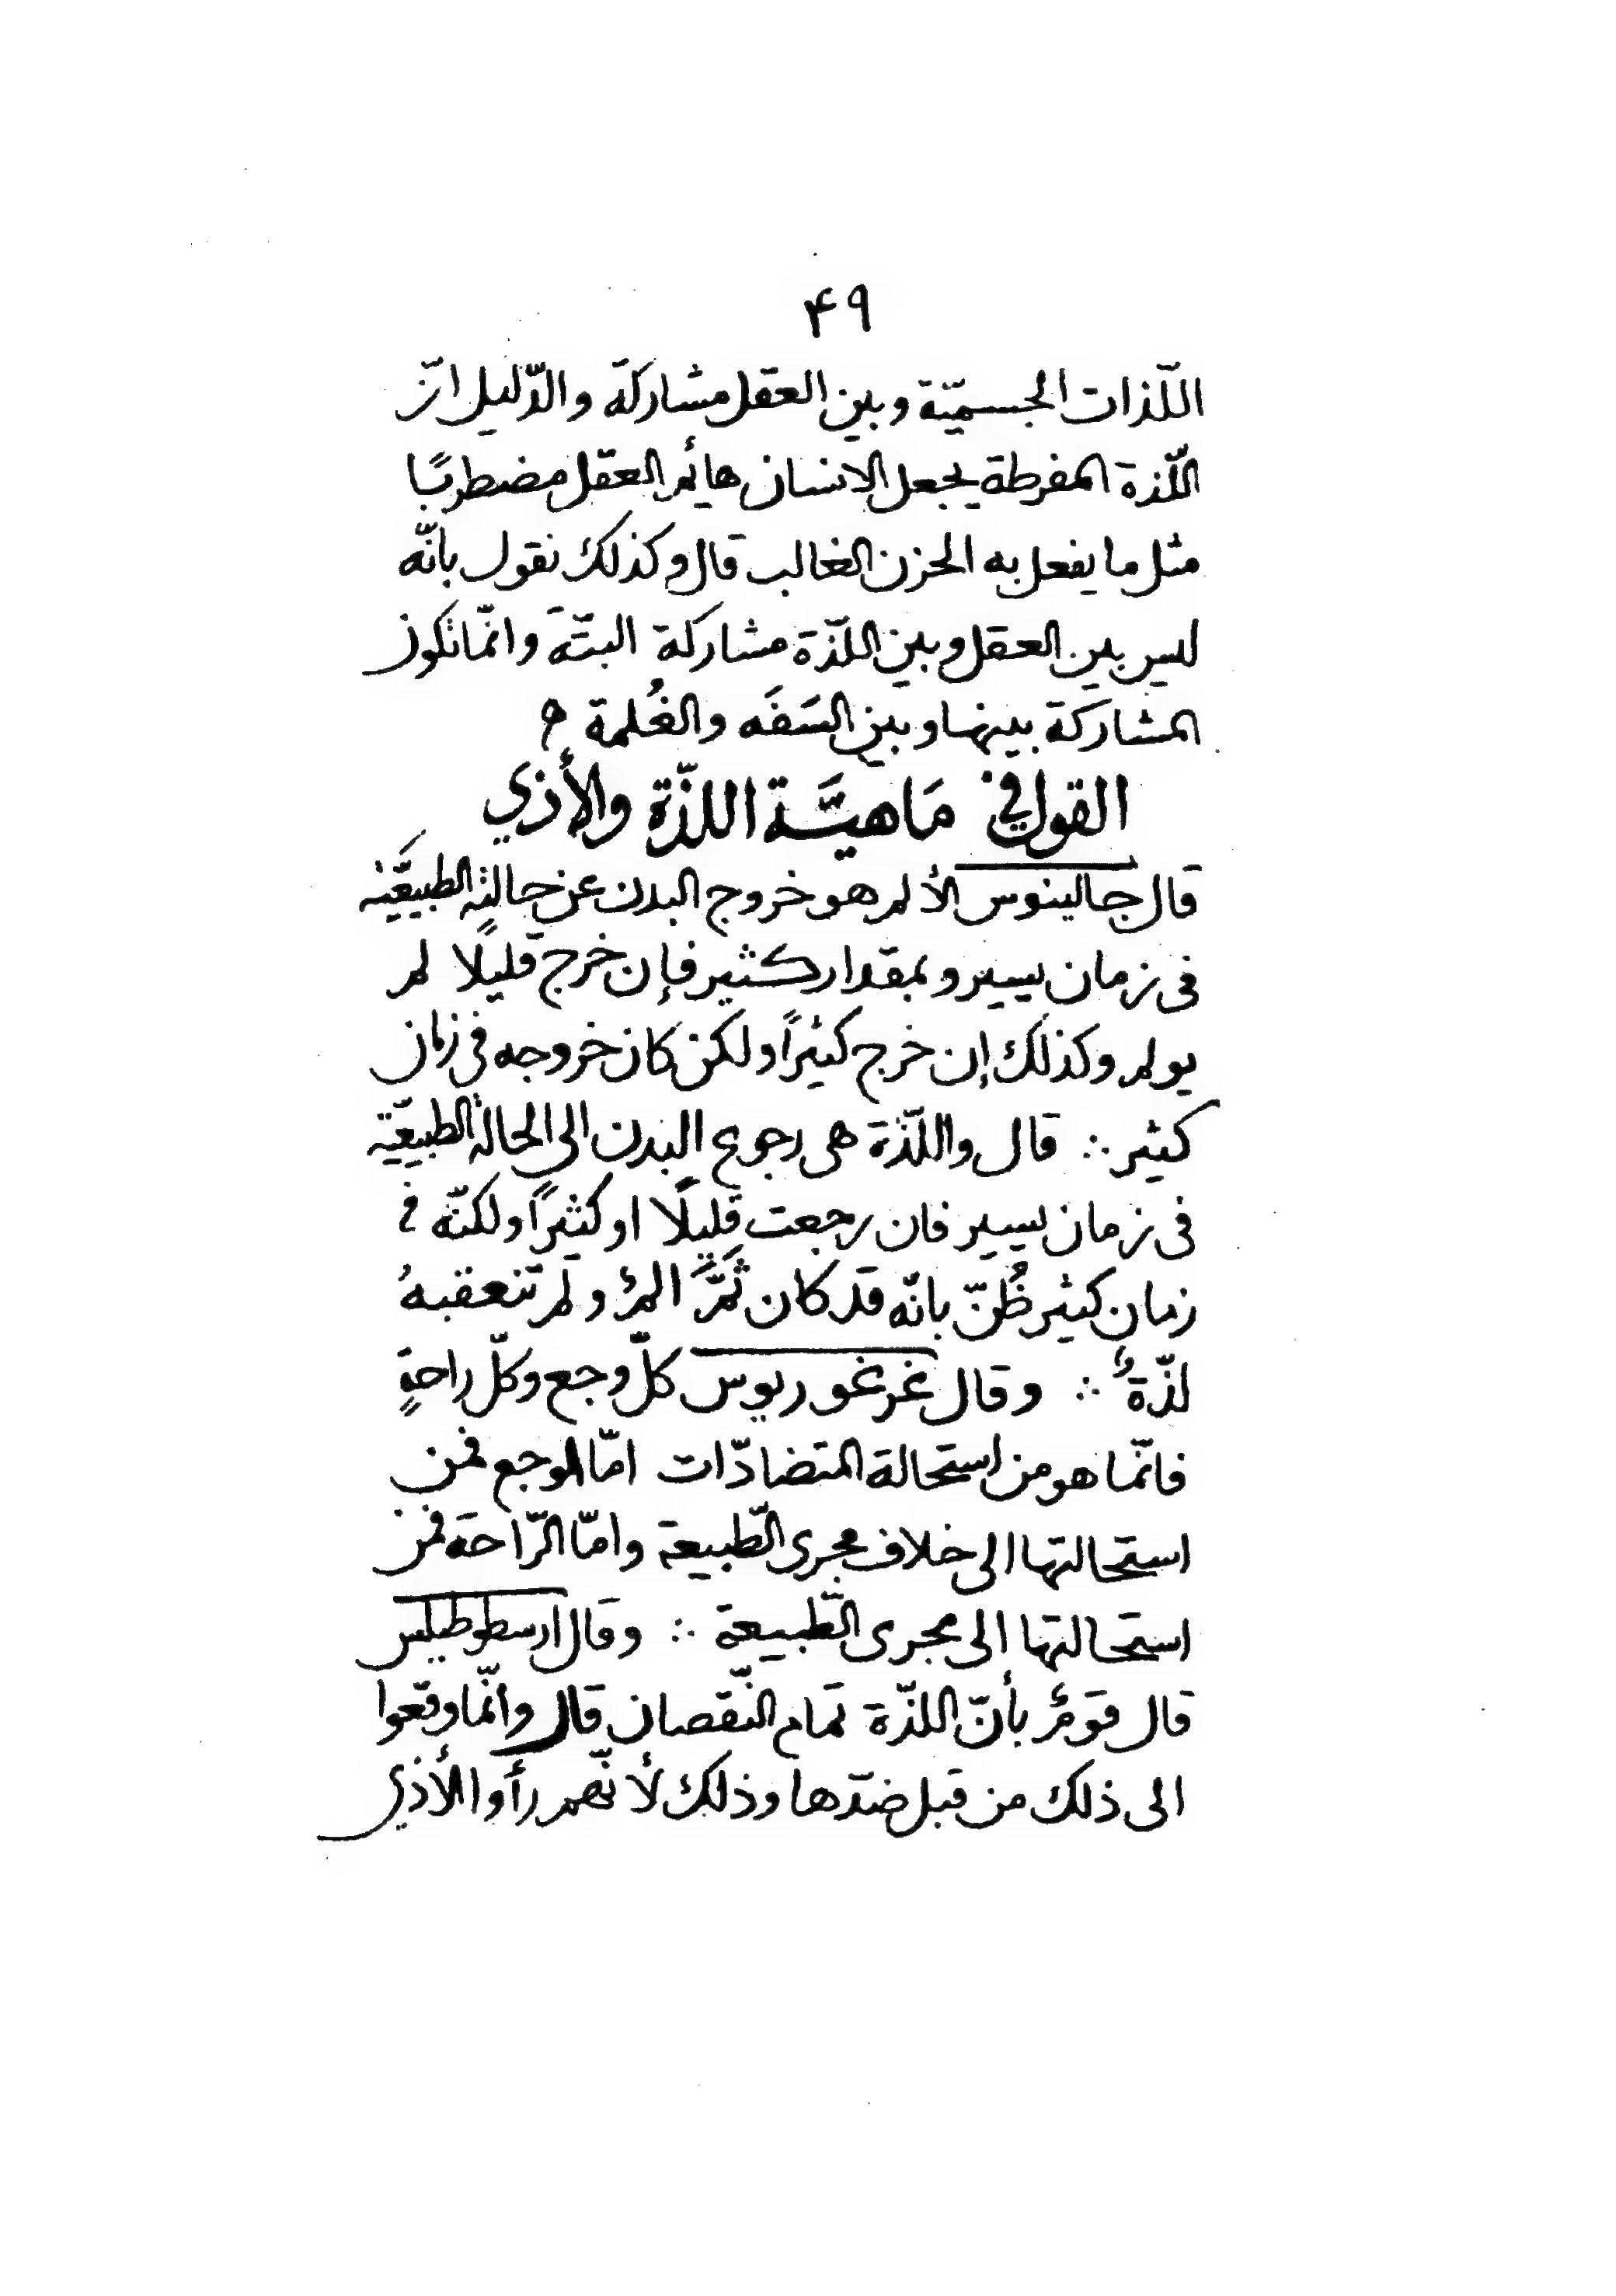 ۴۹
اللّذات الجسميّة وبين العقل مشاركة والدّليل انّ
اللّذة المفرطة يجعل الانسان هائم العقل مضطربًا
مثل ما يفعل به الحزن الغالب قال وكذلك نقول بانّه
ليس بين العقل وبين اللّذة مشاركة البتّةَ وانّما تكون
المشاركة بينها وبين السَفَه والغُلمة
القول في مَاهيَّة اللذّة والأذي
قال جالينوس الألم هو خروج البدن عن حالتِه الطبيعَّية
فى زمان يسير وبمقدار كثير فإن خرج قليلًا لم
يولم وكذلك إن خرج كثيرًا ولكن كان خروجه فى زمان
كثير ∴ قال واللّذة هى رجوع البدن الى الحالة الطبيعيّة
فى زمان يسير فان رجعت قليلًا او كثيرًا ولكنّه فى
زمان كثير ظُنّ بانّه قد كان ثَمَّ المٌ ولَم تتعقبهُ
لذّةٌ ∴ وقال غرغوريوس كلّ وجع وكلّ راحةٍ
فانّما هو من استحالة المتضادّات امّا الوجع فمن
استحالتها الى خلاف مجرى الطّبيعة وامّا الرّاحَة فمن
استحالتها الى مجرى الطّبيعة ∴ وقال ارسطوطيلس
قال قومٌ بأنّ اللذّة تمام النّقصان قال وانّما وقعوا
الى ذلك من قبل ضدّها وذلك لأنّهم رأوا الأذي